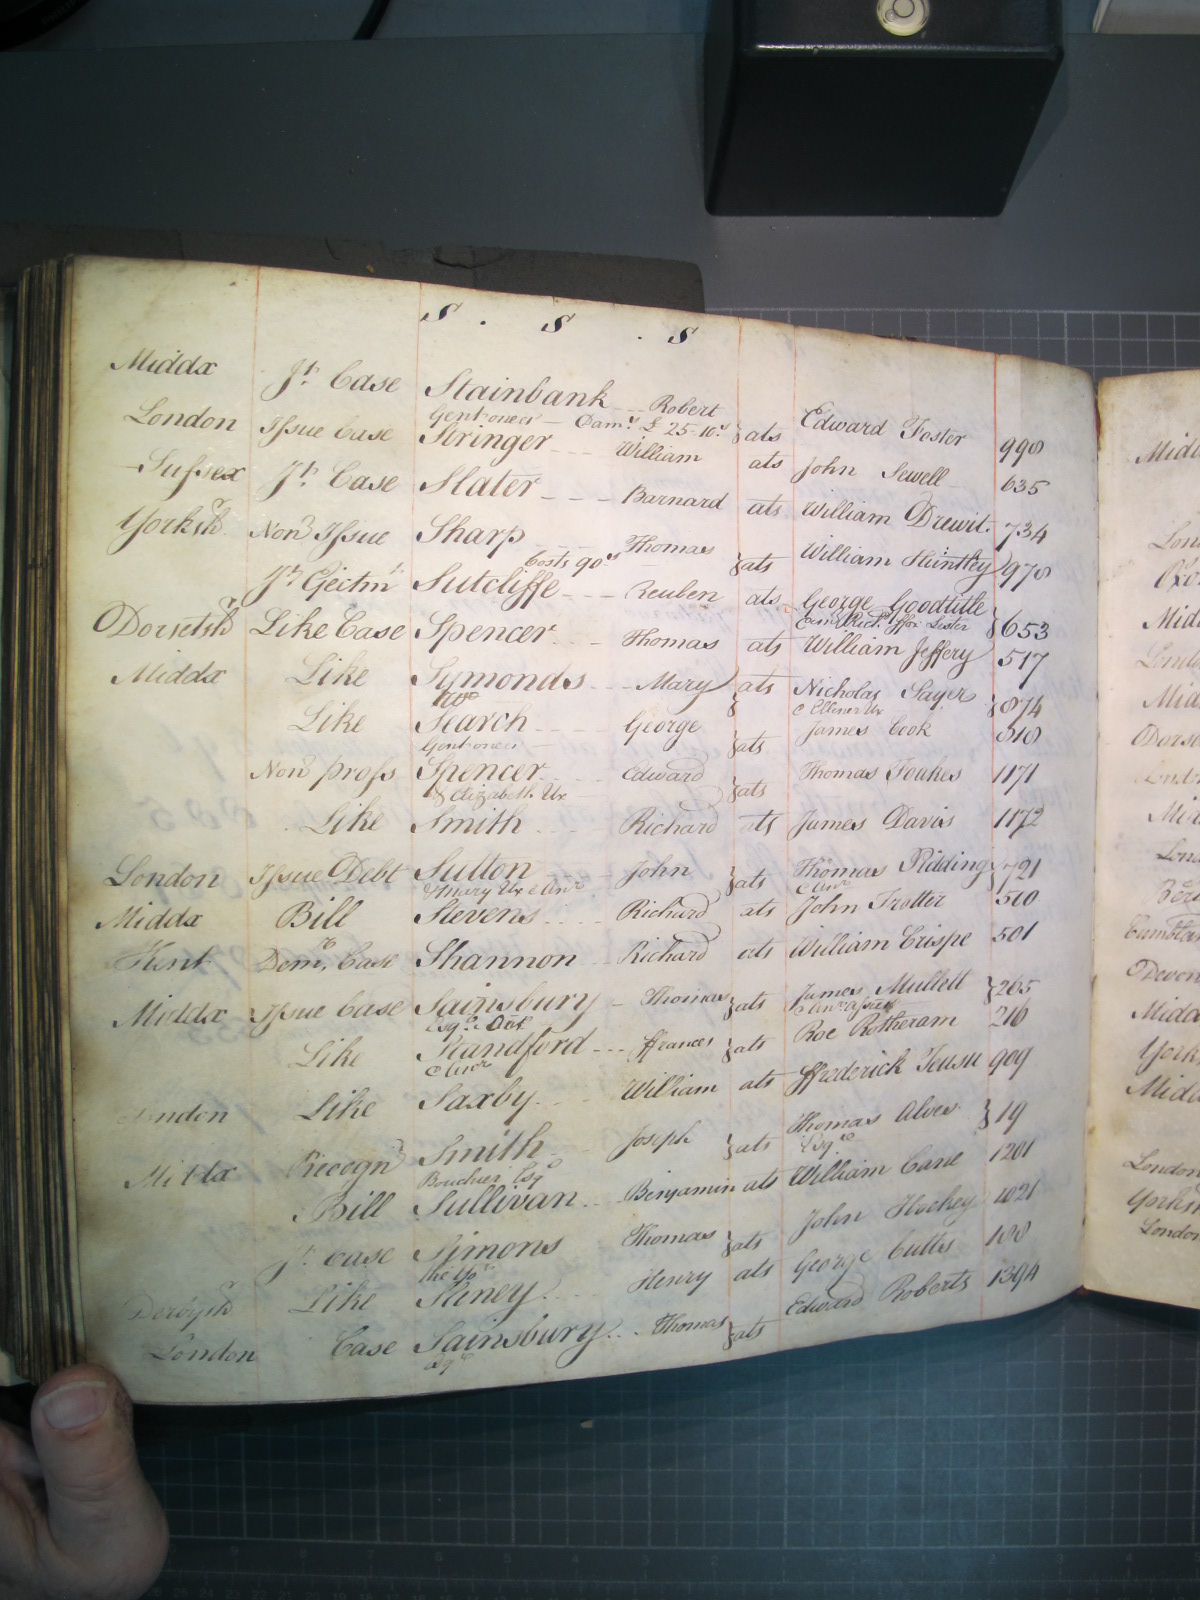 S . S . S
Middx Jt. Case Stainbank Robert
Gent one &c Dams. £ 25-10s } ats Edward Foster 998
London Issue Case Stringer William ats John Sewell 635
Sussex Jt. Case Slater Barnard ats William Drewit 734
Yorksh Non Issue Sharp Thomas
Costs 90s } ats William Huntley 978
Jt. Ejectmt. Sutcliffe Reuben ats George Goodtitle
Lister } 653
Dorsetsh Like Case Spencer Thomas ats William Jeffery 517
Middx Like Symonds Mary } ats Nicholas Sayer
& Ellener Ux } 874
Like Search George
Gent one &c } ats James Cook 818
Non pross Spencer Edward
& Elizabeth Ux } ats Thomas Foakes 1171
Like Smith Richard ats James Davis 1172
London Issue Debt Sutton John
& Mary Ux & anr } ats Thomas Pidding } 721
& anr
Middx Bill Stevens Richard ats John Trotter 510
Kent Demr. Case Shannon Richard ats William Crispe 501
Middx Issue Case Sainsbury Thomas
Esqe. } ats James Mullett } 265
Like Standford ffrances
& anr } ats Roe Rotheram 216
London Like Saxby William ats ffrederick Teush 909
Middx Recogn Smith Joseph
Bouchier Esq } ats Thomas Alves } 19
Esqre
Bill Sullivan Benjamin ats William Cane 1201
Jt. Case Simons Thomas
} ats John Hockey 1021
Derbysh Like Stiney Henry ats George Cutts 188
London Case Sainsbury Thomas
Esqe } ats Edward Roberts 1394
Midd
Lon
Oxo
Midd
London
Mid
Dorse
Mid
Lon
Cumb
Devon
Midd
York
Midd
London
Yorksh
London